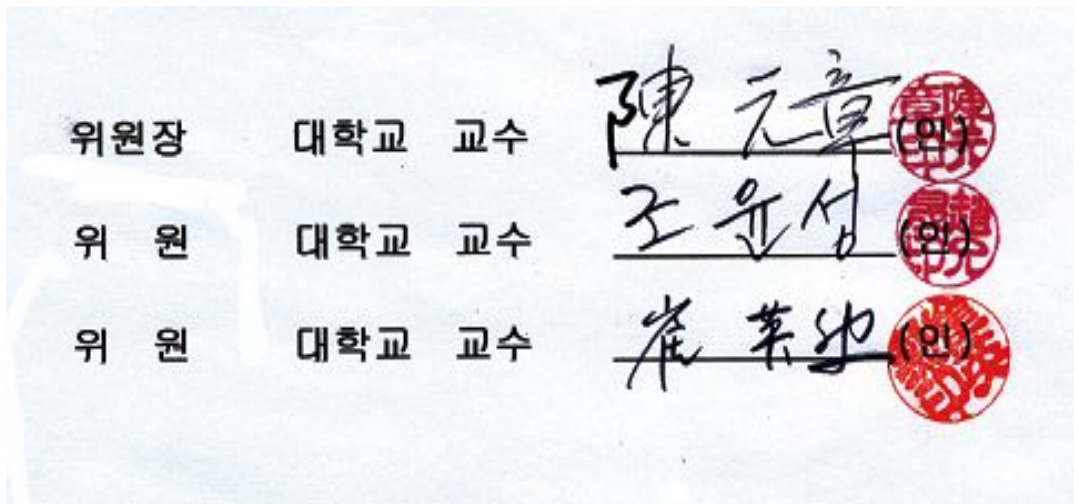 위원장 대학교 교수 陳元章 (인)
위 원 대학교 교수 조윤성 (인)
위 원 대학교 교수 崔英 (인)